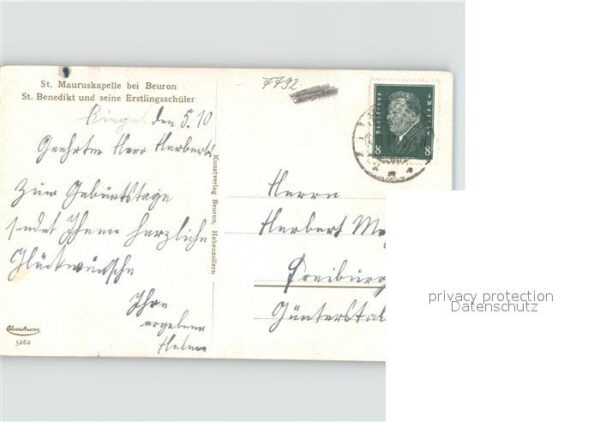 St. Mauruskapelle bei Beuron
St. Benedikt und seine Erstlingsschüler
7792
den 5.10
Geehrter Herr Herbert
Zum Geburtstage
sendet Ihnen herzliche
Glückwünsche
Ihre
ergebene
Helene
5262
Kunstverlag Beuron, Hohenzollern.
Deutsches Reich
8 8
Herrn
Herbert
Freiburg
Günterstal
privacy protection
Datenschutz